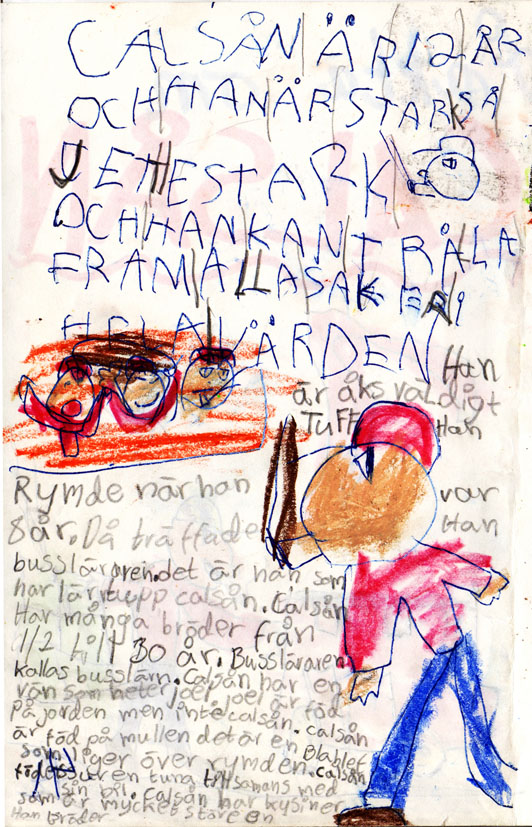 CALSÅN ÄR 12 ÅR
OCH HAN ÄR STARK SÅ
JETTESTARK
OCH HAN KAN TRÅLA
FRAM ALLA SAKER I
HELA VÄRDEN Han
är åks väldigt
Tuff Han
Rymde när han var
8 år. Då träffade Han
bussläraren. det är han som
har lärt upp calsån. Calsån
Har många bröder från
1/2 till 30 år. Bussläraren
kallas busslärn. Calsån har en
vän som heter joel. joel är föd
På jorden men inte calsån. calsån
är föd på mullen det är en
som liger över rymden. calsån
ur en tung tillsamans med
sin bil. Calsån har kusiner
som är mycket store en
Han bröder